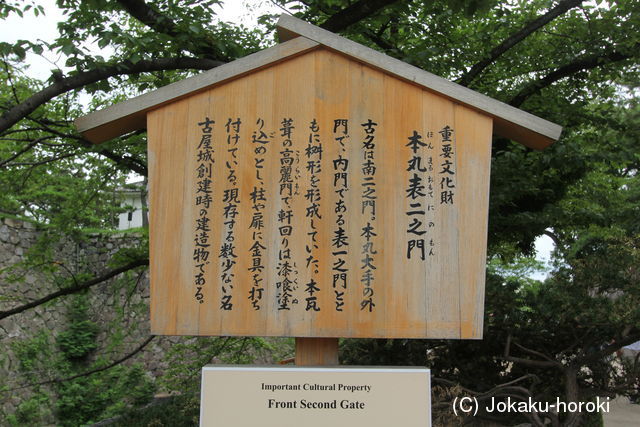 重要文化財
本丸表二之門
ほん まる おもて に の もん
古名は南二之門。本丸大手の外
門で、内門である表一之門とと
もに桝形を形成していた。本瓦
葺の高麗門で、軒回りは漆喰塗
こうらいもん
しっくいぬ
り込めとし、柱や扉に金具を打ち
ご
付けている。現存する数少ない名
古屋城創建時の建造物である。
Important Cultural Property
Front Second Gate
(C) Jokaku-horoki